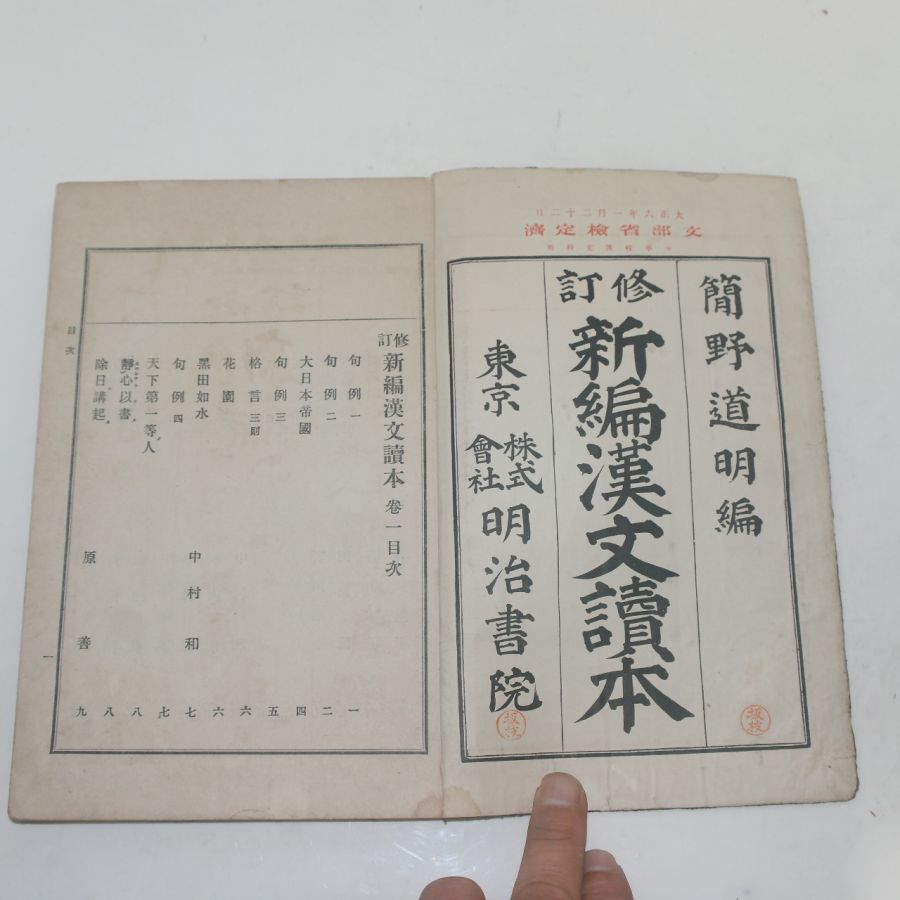 大正六年一月二十二日
文部省檢定濟
簡野道明編
修訂
新編漢文讀本
東京 株式會社 明治書院
修訂 新編漢文讀本 卷一目次
句例一 一
句例二 二
大日本帝國 四
句例三 五
格言三則 六
花園 六
黑田如水 中村和 七
句例四 七
天下第一等人 八
靜心以書 八
除日講起 原善 九
目次
一